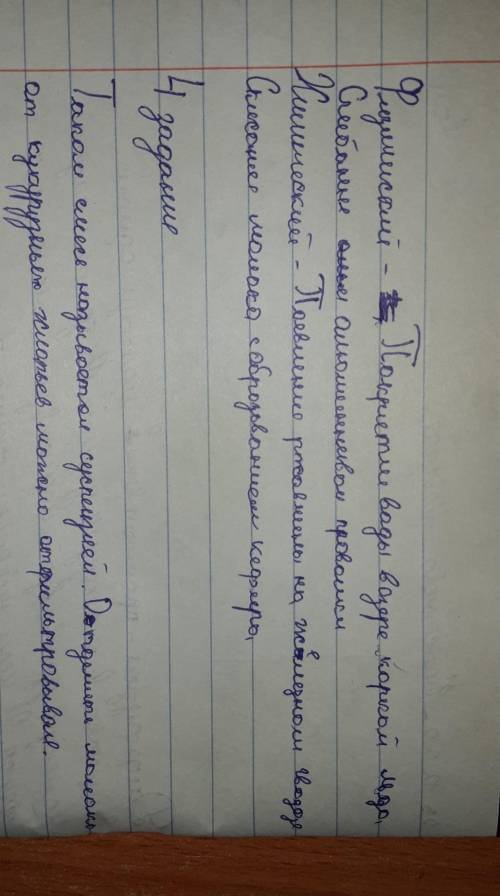 Физический - Покрытие воды в озере коркой льда,
Сгибание алюминевой проволки
Химический - Поевление ржавчины на железном гвозде
Скисание молока с образованием кефира,
4 задание
Такая смесь называется суспензией. Отделить молоко
от кукурузных хлопьев можно отфильтровывая.